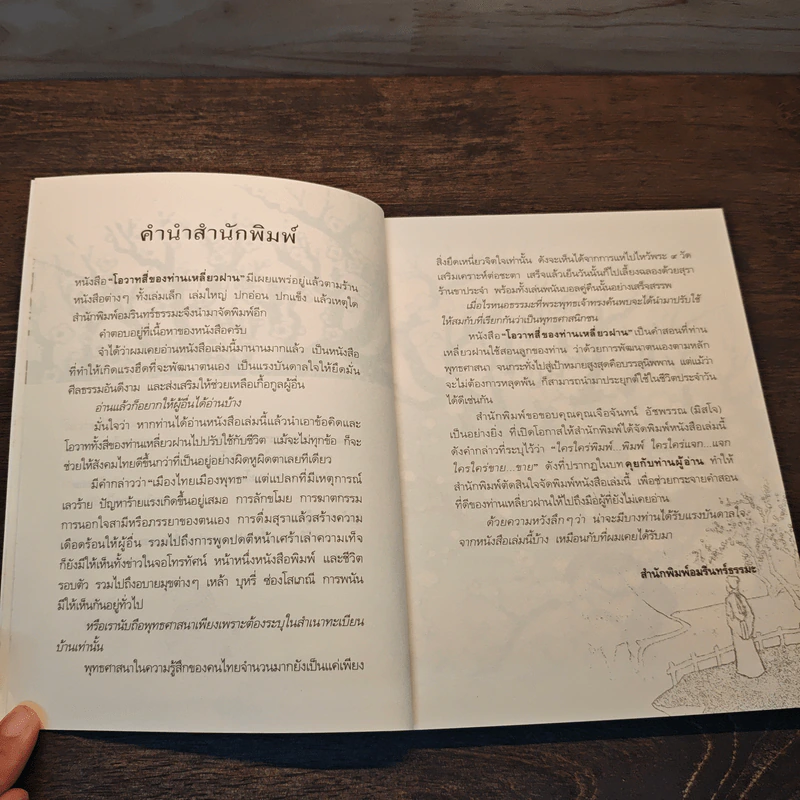 คำนำสำนักพิมพ์
หนังสือ “โอวาทสี่ของท่านเหลี่ยวฝาน” มีเผยแพร่อยู่แล้วตามร้าน
หนังสือต่างๆ ทั้งเล่มเล็ก เล่มใหญ่ ปกอ่อน ปกแข็ง แล้วเหตุใด
สำนักพิมพ์อมรินทร์ธรรมะจึงนำมาจัดพิมพ์อีก
คำตอบอยู่ที่เนื้อหาของหนังสือครับ
จำได้ว่าผมเคยอ่านหนังสือเล่มนี้มานานมากแล้ว เป็นหนังสือ
ที่ทำให้เกิดแรงฮึดที่จะพัฒนาตนเอง เป็นแรงบันดาลใจให้ยึดมั่น
ศีลธรรมอันดีงาม และส่งเสริมให้ช่วยเหลือเกื้อกูลผู้อื่น
อ่านแล้วก็อยากให้ผู้อื่นได้อ่านบ้าง
มั่นใจว่า หากท่านได้อ่านหนังสือเล่มนี้แล้วนำเอาข้อคิดและ
โอวาททั้งสี่ของท่านเหลี่ยวฝานไปปรับใช้กับชีวิต แม้จะไม่ทุกข้อ ก็จะ
ช่วยให้สังคมไทยดีขึ้นกว่าที่เป็นอยู่อย่างผิดหูผิดตาเลยทีเดียว
มีคำกล่าวว่า “เมืองไทยเมืองพุทธ” แต่แปลกที่มีเหตุการณ์
เลวร้าย ปัญหาร้ายแรงเกิดขึ้นอยู่เสมอ การลักขโมย การฆาตกรรม
การนอกใจสามีหรือภรรยาของตนเอง การดื่มสุราแล้วสร้างความ
เดือดร้อนให้ผู้อื่น รวมไปถึงการพูดปดตีหน้าเศร้าเล่าความเท็จ
ก็ยังมีให้เห็นทั้งข่าวในจอโทรทัศน์ หน้าหนึ่งหนังสือพิมพ์ และชีวิต
รอบตัว รวมไปถึงอบายมุขต่างๆ เหล้า บุหรี่ ซ่องโสเภณี การพนัน
มีให้เห็นกันอยู่ทั่วไป
หรือเรานับถือพุทธศาสนาเพียงเพราะต้องระบุในสำเนาทะเบียน
บ้านเท่านั้น
พุทธศาสนาในความรู้สึกของคนไทยจำนวนมากยังเป็นแค่เพียง
สิ่งยึดเหนี่ยวจิตใจเท่านั้น ดังจะเห็นได้จากการแห่ไปไหว้พระ ๙ วัด
เสริมเคราะห์ต่อชะตา เสร็จแล้วเย็นวันนั้นก็ไปเลี้ยงฉลองด้วยสุรา
ร้านขาประจำ พร้อมทั้งเล่นพนันบอลคู่ดึกนั้นอย่างเสร็จสรรพ
เมื่อไรหนอธรรมะที่พระพุทธเจ้าทรงค้นพบจะได้นำมาปรับใช้
ให้สมกับที่เรียกกันว่าเป็นพุทธศาสนิกชน
หนังสือ “โอวาทสี่ของท่านเหลี่ยวฝาน” เป็นคำสอนที่ท่าน
เหลี่ยวฝานใช้สอนลูกของท่าน ว่าด้วยการพัฒนาตนเองตามหลัก
พุทธศาสนา จนกระทั่งไปสู่เป้าหมายสูงสุดคือบรรลุนิพพาน แต่แม้ว่า
จะไม่ต้องการหลุดพ้น ก็สามารถนำมาประยุกต์ใช้ในชีวิตประจำวัน
ได้ดีเช่นกัน
สำนักพิมพ์ขอขอบคุณคุณเจือจันทน์ อัชพรรณ (มิสโจ)
เป็นอย่างยิ่ง ที่เปิดโอกาสให้สำนักพิมพ์ได้จัดพิมพ์หนังสือเล่มนี้
ดังคำกล่าวที่ระบุไว้ว่า “ใครใคร่พิมพ์...พิมพ์ ใครใคร่แจก...แจก
ใครใคร่ขาย...ขาย” ดังที่ปรากฏในบท คุยกับท่านผู้อ่าน ทำให้
สำนักพิมพ์ตัดสินใจจัดพิมพ์หนังสือเล่มนี้ เพื่อช่วยกระจายคำสอน
ที่ดีของท่านเหลี่ยวฝานให้ไปถึงมือผู้ที่ยังไม่เคยอ่าน
ด้วยความหวังลึกๆ ว่า น่าจะมีบางท่านได้รับแรงบันดาลใจ
จากหนังสือเล่มนี้บ้าง เหมือนกับที่ผมเคยได้รับมา
สำนักพิมพ์อมรินทร์ธรรมะ